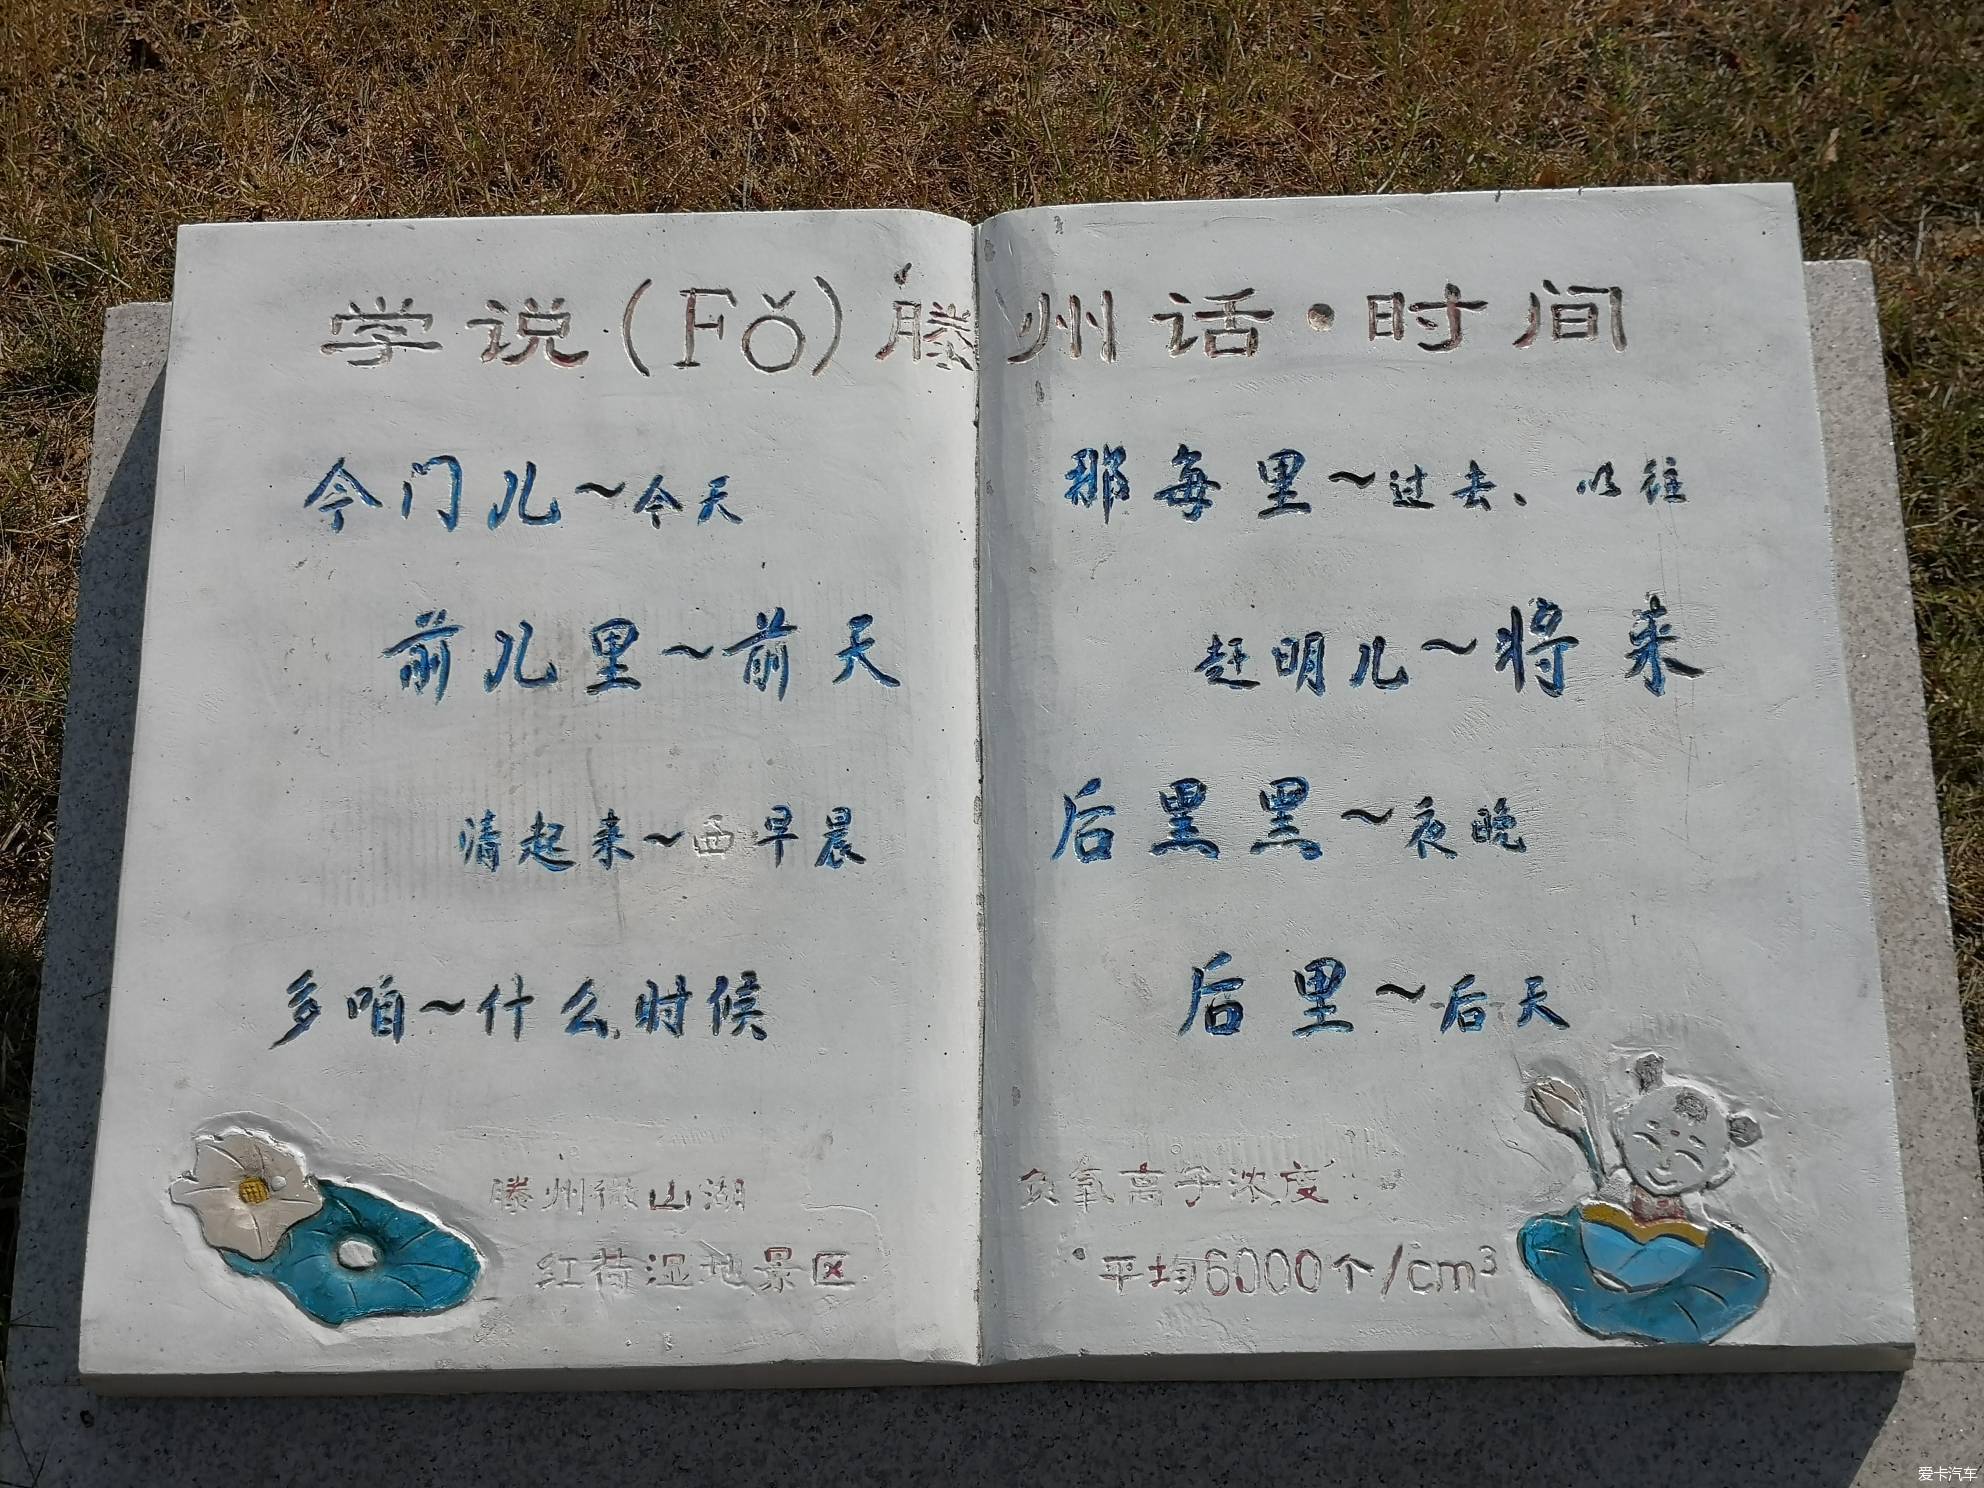 学说(Fǒ)滕州话·时间
今门儿~今天
前儿里~前天
清起来~西早晨
多咱~什么时候
滕州微山湖
红荷湿地景区
那每里~过去、以往
赶明儿~将来
后黑黑~夜晚
后里~后天
负氧离子浓度:
平均6000个/cm³
爱卡汽车